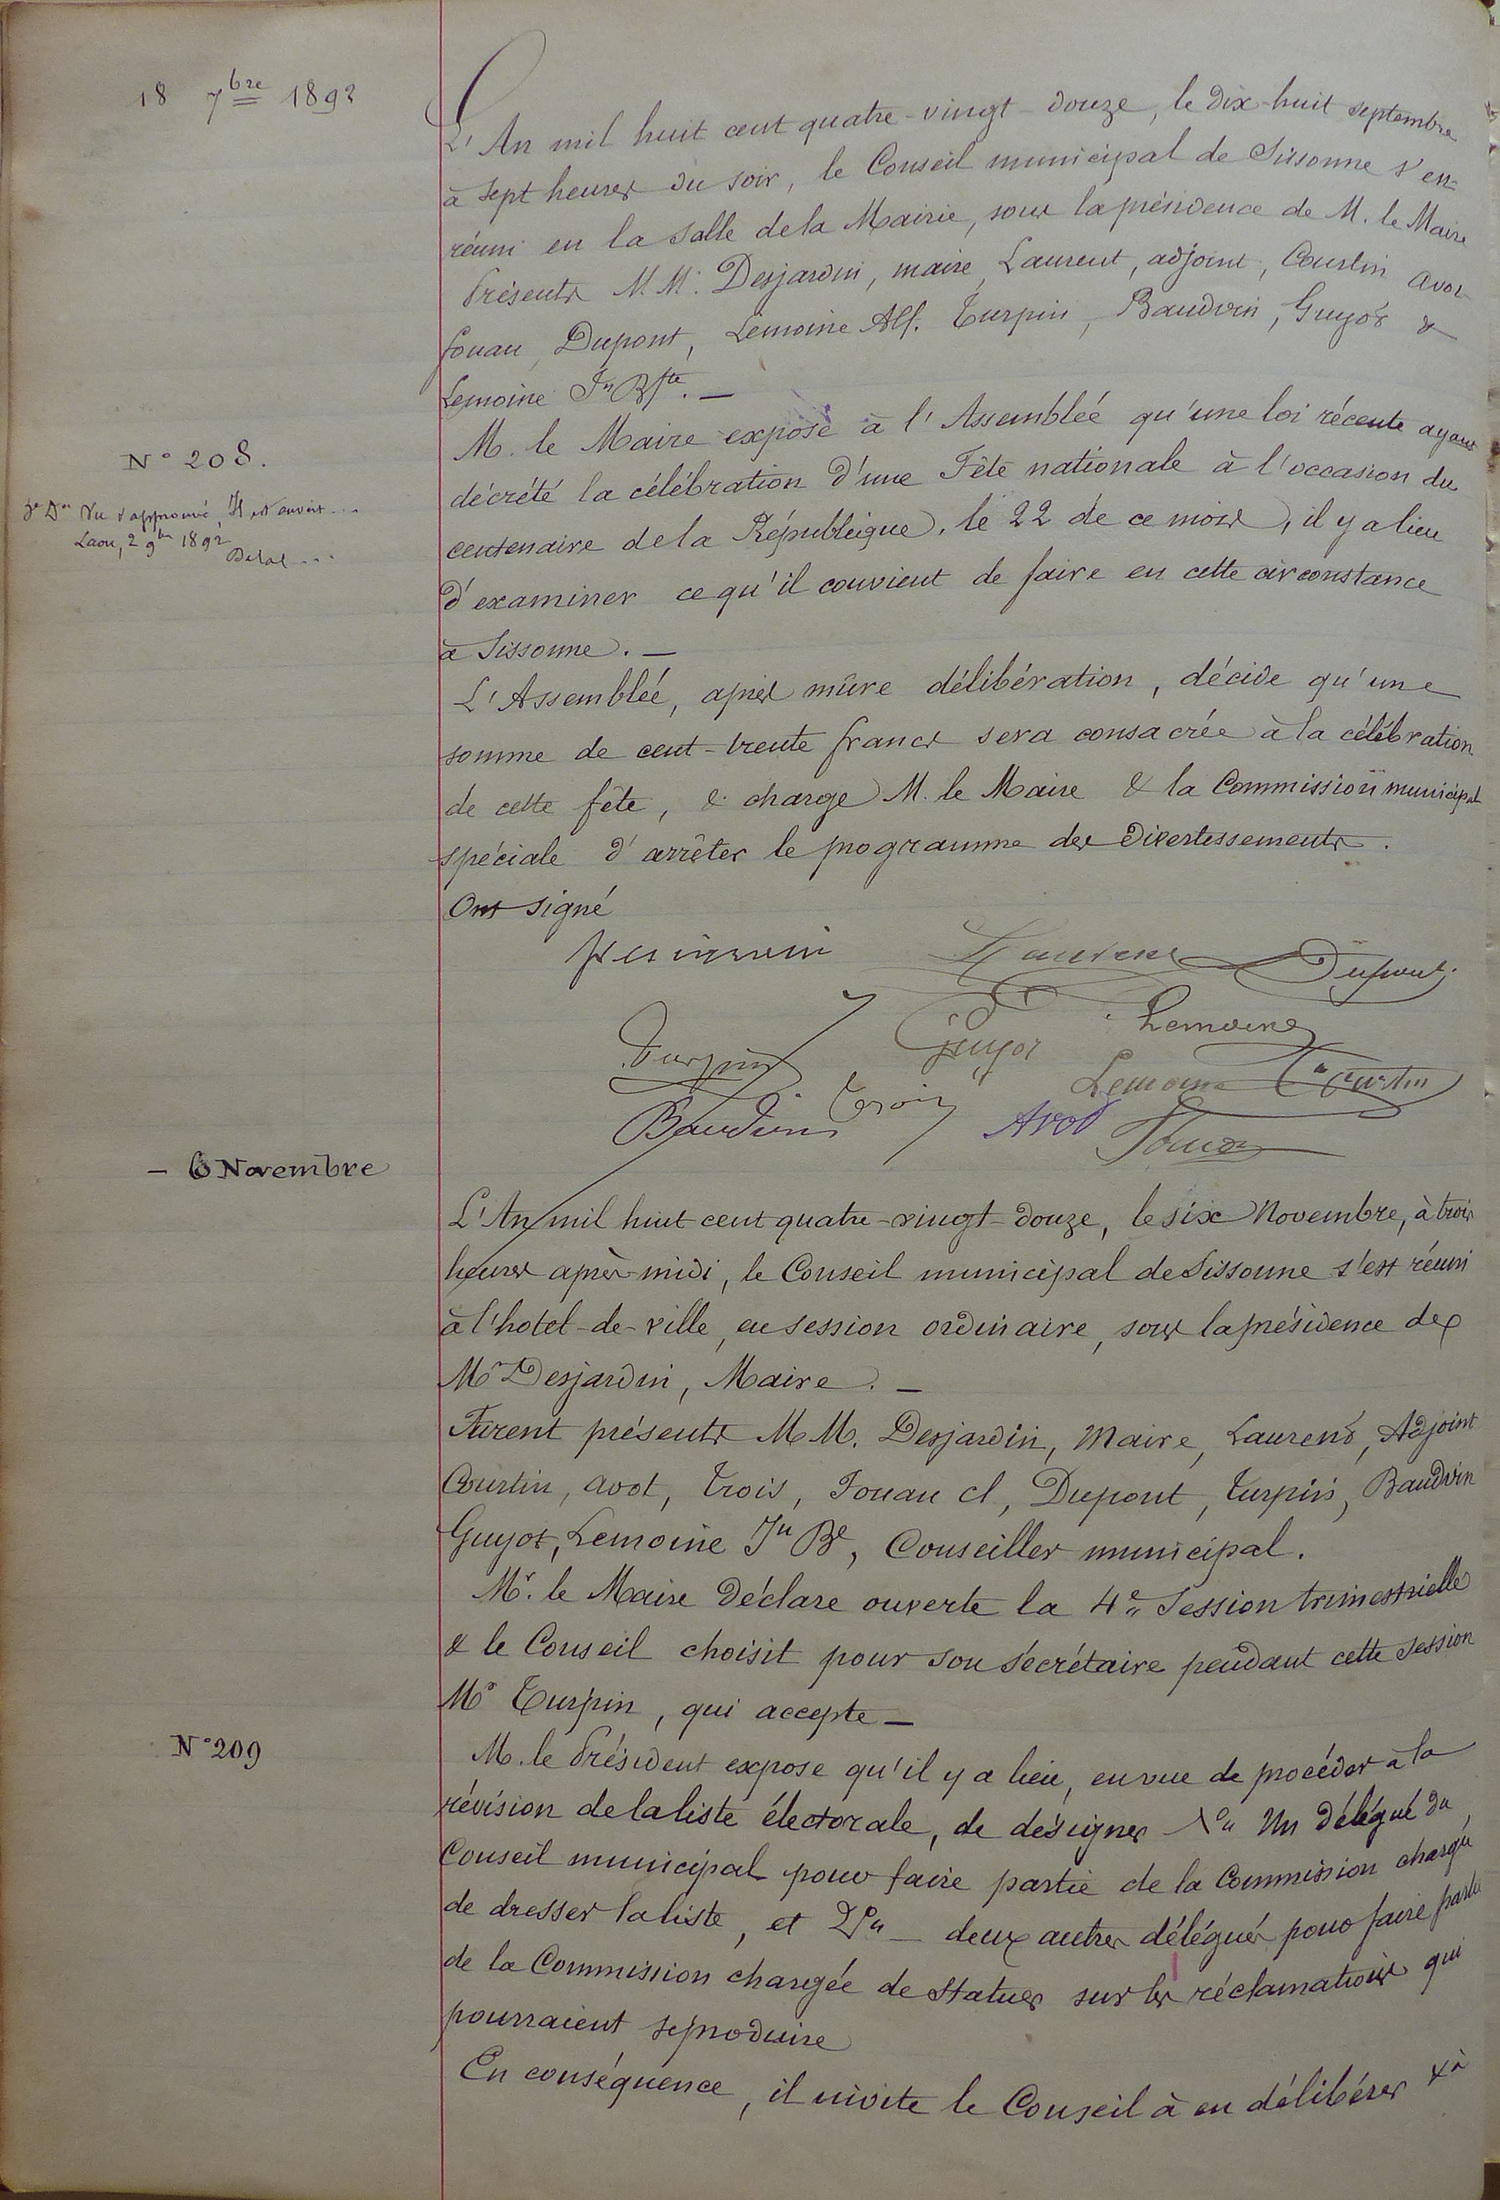 18 7bre 1892
L'An mil huit cent quatre-vingt-douze, le dix-huit septembre
à sept heures du soir, le Conseil municipal de Sissonne s'est
réuni en la salle de la Mairie, sous la présidence de M. le Maire
Présents M.M. Desjardin, maire, Laurent, adjoint, Courtin Avot
Fouan, Dupont, Lemoine Alf. Turpin, Baudvin, Guyot &
Lemoine Jn Bste. —
N° 208.
M. le Maire expose à l'Assembléé qu'une loi récente ayant
décrété la célébration d'une Fête nationale à l'occasion du
Vu & approuvé,
Laon, 2 9bre 1892
centenaire de la République, le 22 de ce mois, il y a lieu
d'examiner ce qu'il convient de faire en cette circonstance
à Sissonne. —
L'Assembléé, après mûre délibération, décide qu'une
somme de cent-trente francs sera consacrée à la célébration
de cette fête, & charge M. le Maire & la Commission municipale
spéciale d'arrêter le programme des divertissements.
Ont signé
Laurent Dupont
Turpin Guyot Lemoine
Lemoine Courtin
Baudvin Trois Avot Fouan
— 6 Novembre
L'An mil huit cent quatre-vingt-douze, le six Novembre, à trois
heures après-midi, le Conseil municipal de Sissonne s'est réuni
à l'hotel-de-ville, en session ordinaire, sous la présidence de
Mr Desjardin, Maire. —
Furent présents M.M. Desjardin, Maire, Laurent, Adjoint
Courtin, Avot, Trois, Fouan Cl, Dupont, Turpin, Baudvin
Guyot, Lemoine Jn Be, Conseiller municipal.
Mr. le Maire déclare ouverte la 4e Session trimestrielle
& le Conseil choisit pour son sécrétaire pendant cette session
Mr Turpin, qui accepte —
N° 209
M. le Président expose qu'il y a lieu, en vue de procéder à la
révision de la liste électorale, de désigner 1° Un délégué du
Conseil municipal pour faire partie de la Commission chargée
de dresser la liste, et 2° — deux autres délégués pour faire partie
de la Commission chargée de statuer sur les réclamations qui
pourraient se produire
En conséquence, il invite le Conseil à en délibérer & à